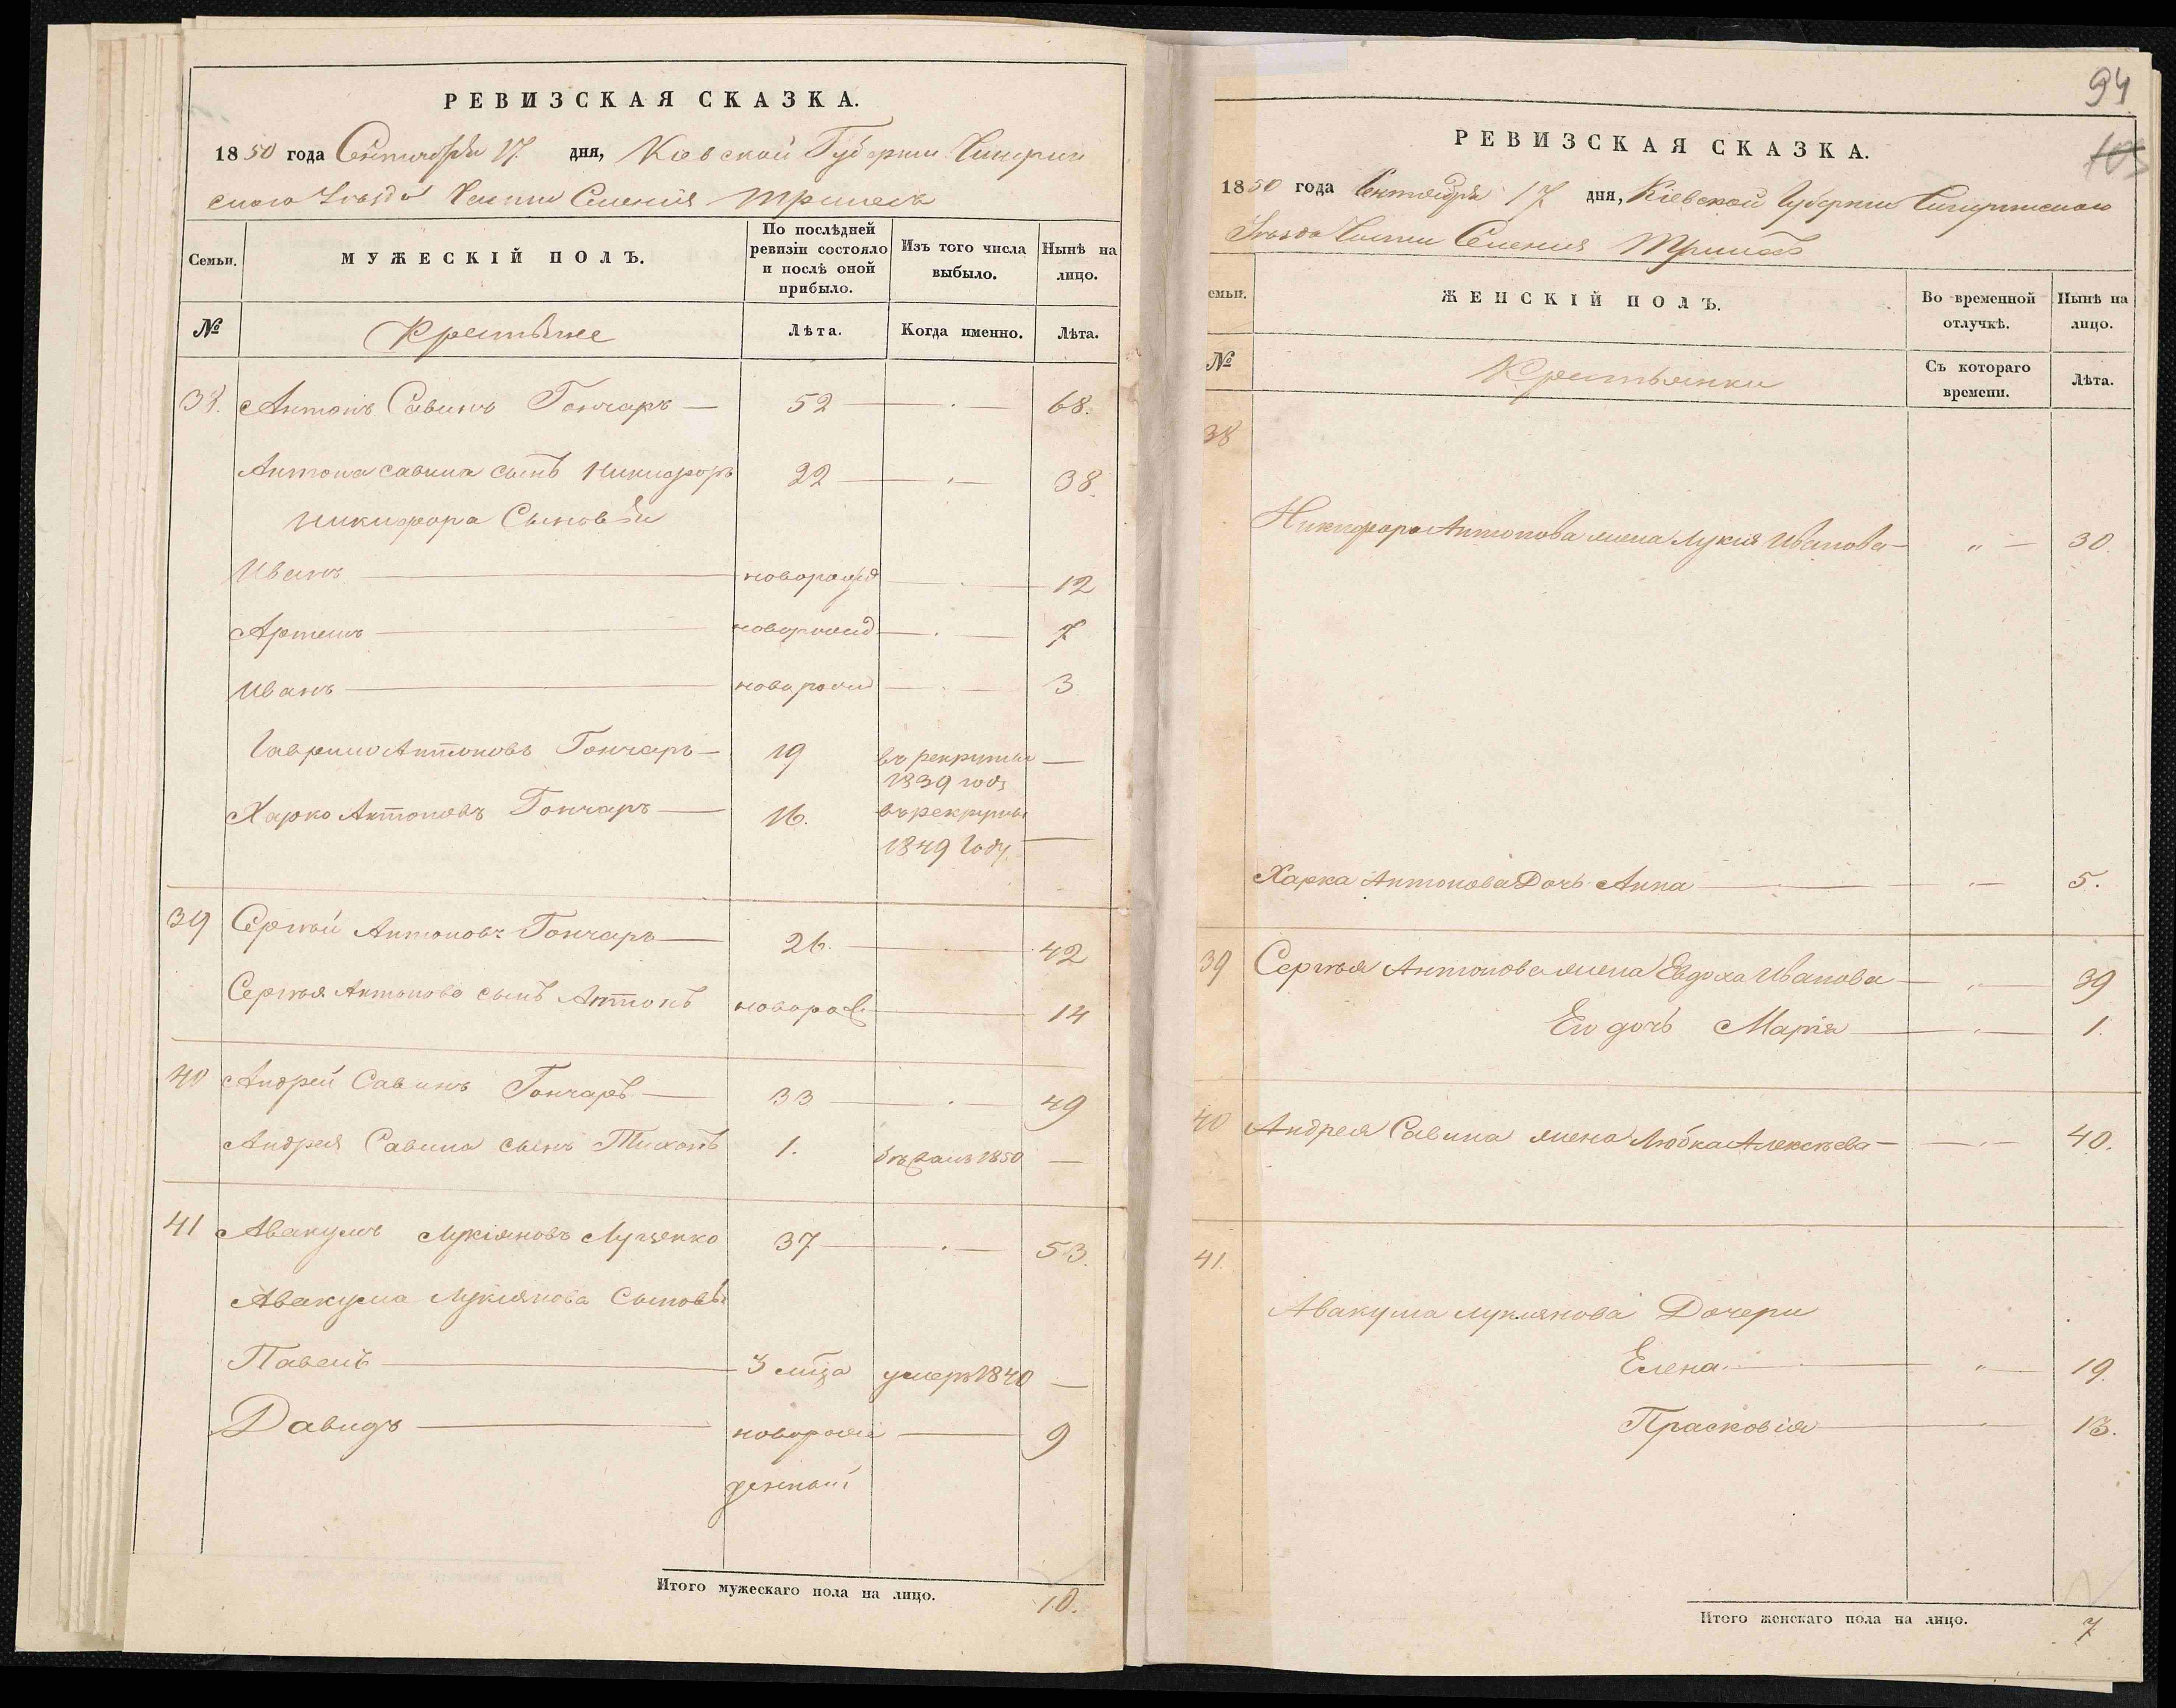 РЕВИЗСКАЯ СКАЗКА.
1850 года Сентября 17 дня, Кіевской Губерніи Чигирин
скаго Уѣзда Части Селенія
Семьи.
МУЖЕСКІЙ ПОЛЪ.
По послѣдней ревизіи состояло и послѣ оной прибыло.
Изъ того числа выбыло.
Нынѣ на лицо.
№
Крестьяне
Лѣта.
Когда именно.
Лѣта.
38. Антонъ Савинъ Гончаръ — 52 — 68.
Антона Савина сынъ Никифоръ 22 — 38.
Никифора Сыновья
Иванъ — новорожд — 12
Артемъ — новорожд — 7
Иванъ — новорож — 3
Гаврило Антоновъ Гончаръ — 19 въ рекруты —
1839 годъ
Харко Антоновъ Гончаръ — 16. въ рекруты
1849 Году. —
39 Сергѣй Антоновъ Гончаръ — 26. — 42
Сергѣя Антонова сынъ Антонъ новорож — 14
40 Андрей Савинъ Гончаръ — 33 — 49
Андрея Савина сынъ Тихонъ 1. 1850 —
41 Авакумъ Лукіяновъ 37 — 53.
Авакума Лукіянова Сыновья
Павелъ — 3 м-ца умеръ 1840 —
Давидъ — новорож — 9
денный
Итого мужескаго пола на лицо. 10.
94
103
РЕВИЗСКАЯ СКАЗКА.
1850 года Сентября 17 дня, Кіевской Губерніи Чигиринскаго
Уѣзда Части Селенія
Семьи.
ЖЕНСКІЙ ПОЛЪ.
Во временной отлучкѣ.
Нынѣ на лицо.
№
Крестьянки
Съ котораго времени.
Лѣта.
38
Никифора Антонова жена Лукія Иванова — „ — 30.
Харка Антонова Дочь Анна — 5.
39 Сергѣя Антонова жена Евдоха Иванова — „ — 39
Его дочь Марія — „ — 1.
40 Андрея Савина жена Любка Алексѣева — 40.
41.
Авакума Лукіянова Дочери
Елена — „ — 19.
Прасковія — 13.
Итого женскаго пола на лицо. 7